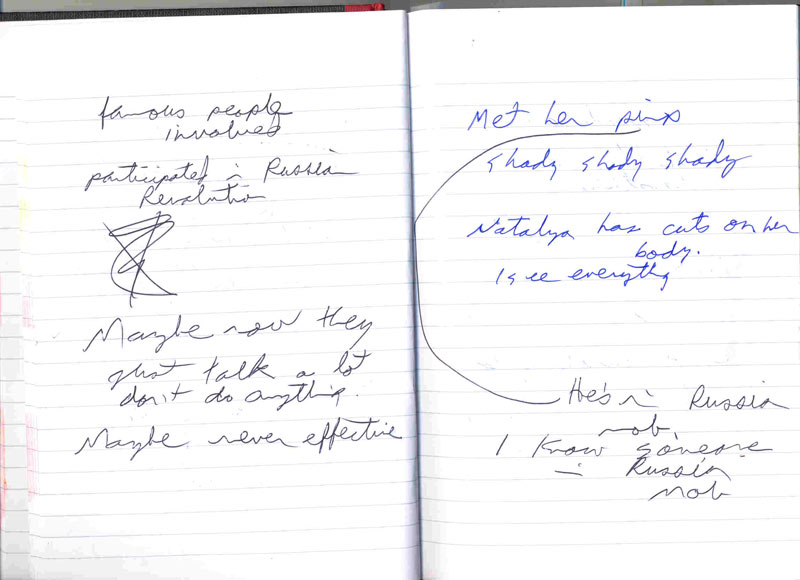 famous people
involved
participated in Russian
Revolution
Maybe now they
just talk a lot
don't do anything.
Maybe never effective
Met her
shady shady shady
Natalya has cuts on her
body.
I see everything
He's in Russian
mob.
I know someone
in Russian
mob